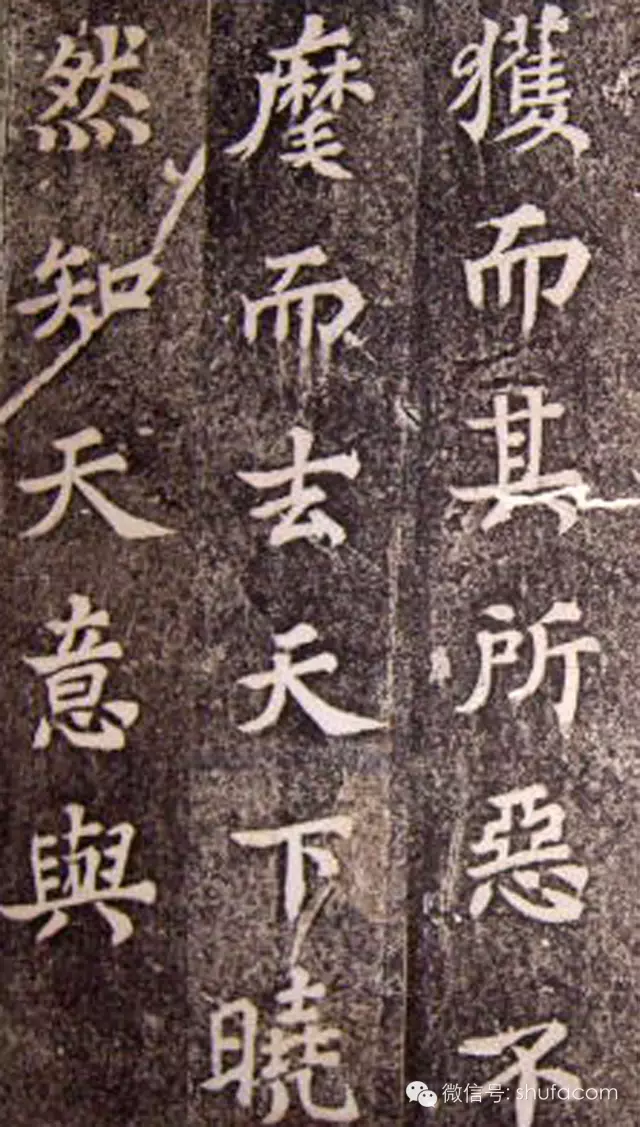 獲而其所惡不
麾而去天下曉
然知天意與
微信号: shufacom